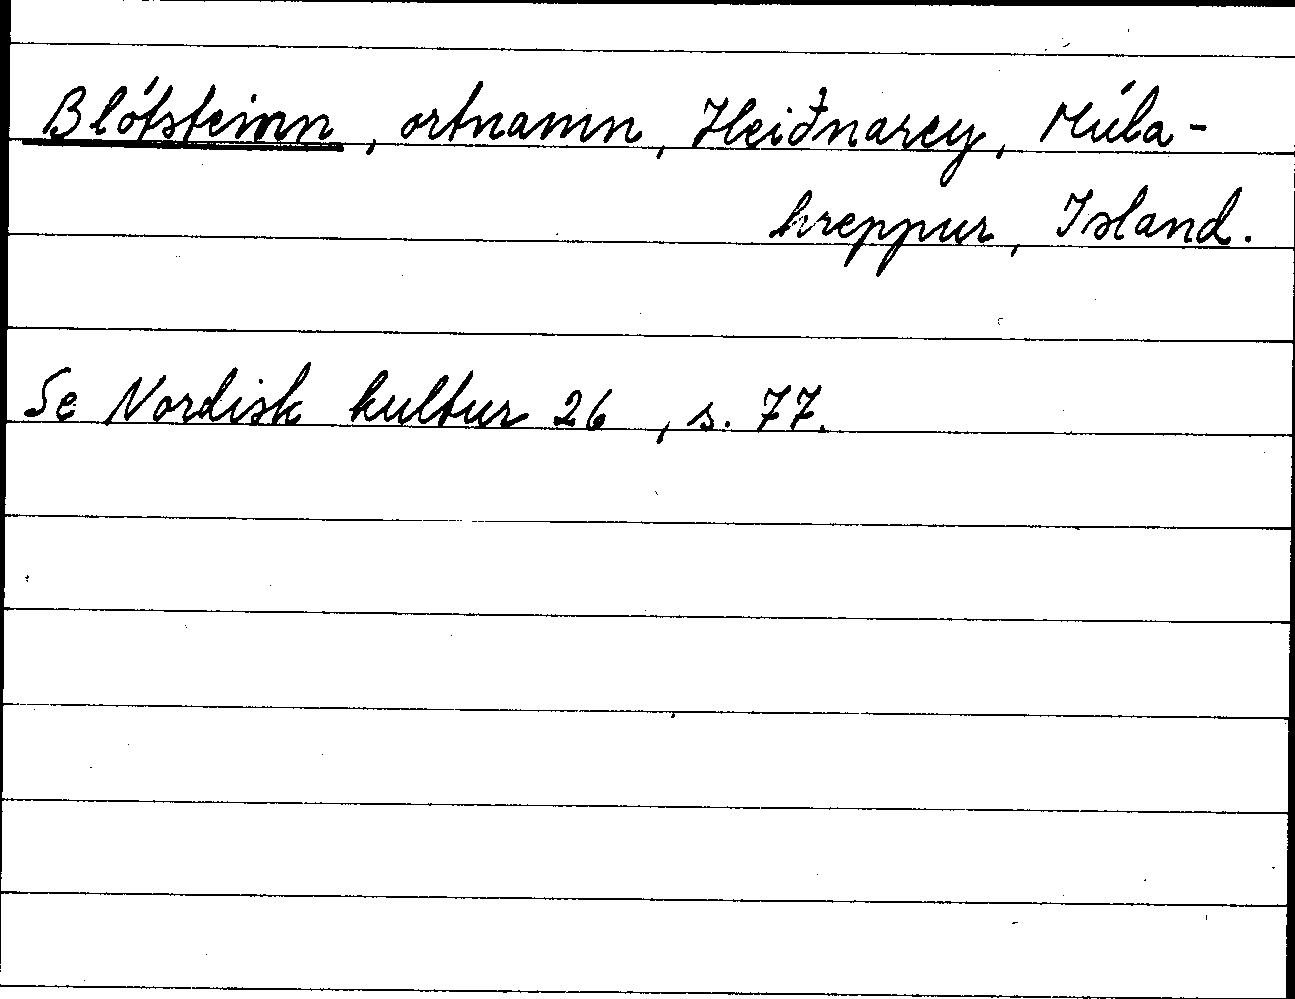 Blótsteinn, ortnamn, Heiðnarey, Múla-
hreppur, Island.
Se Nordisk kultur 26, s. 77.